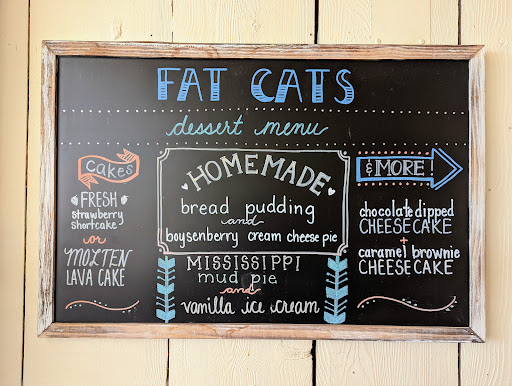 FAT CATS
dessert menu
cakes
FRESH
strawberry
shortcake
or
MOLTEN
LAVA CAKE
HOMEMADE
bread pudding
and
boysenberry cream cheese pie
MISSISSIPPI
mud pie
and
vanilla ice cream
& MORE!
chocolate dipped
CHEESECAKE
+
caramel brownie
CHEESECAKE